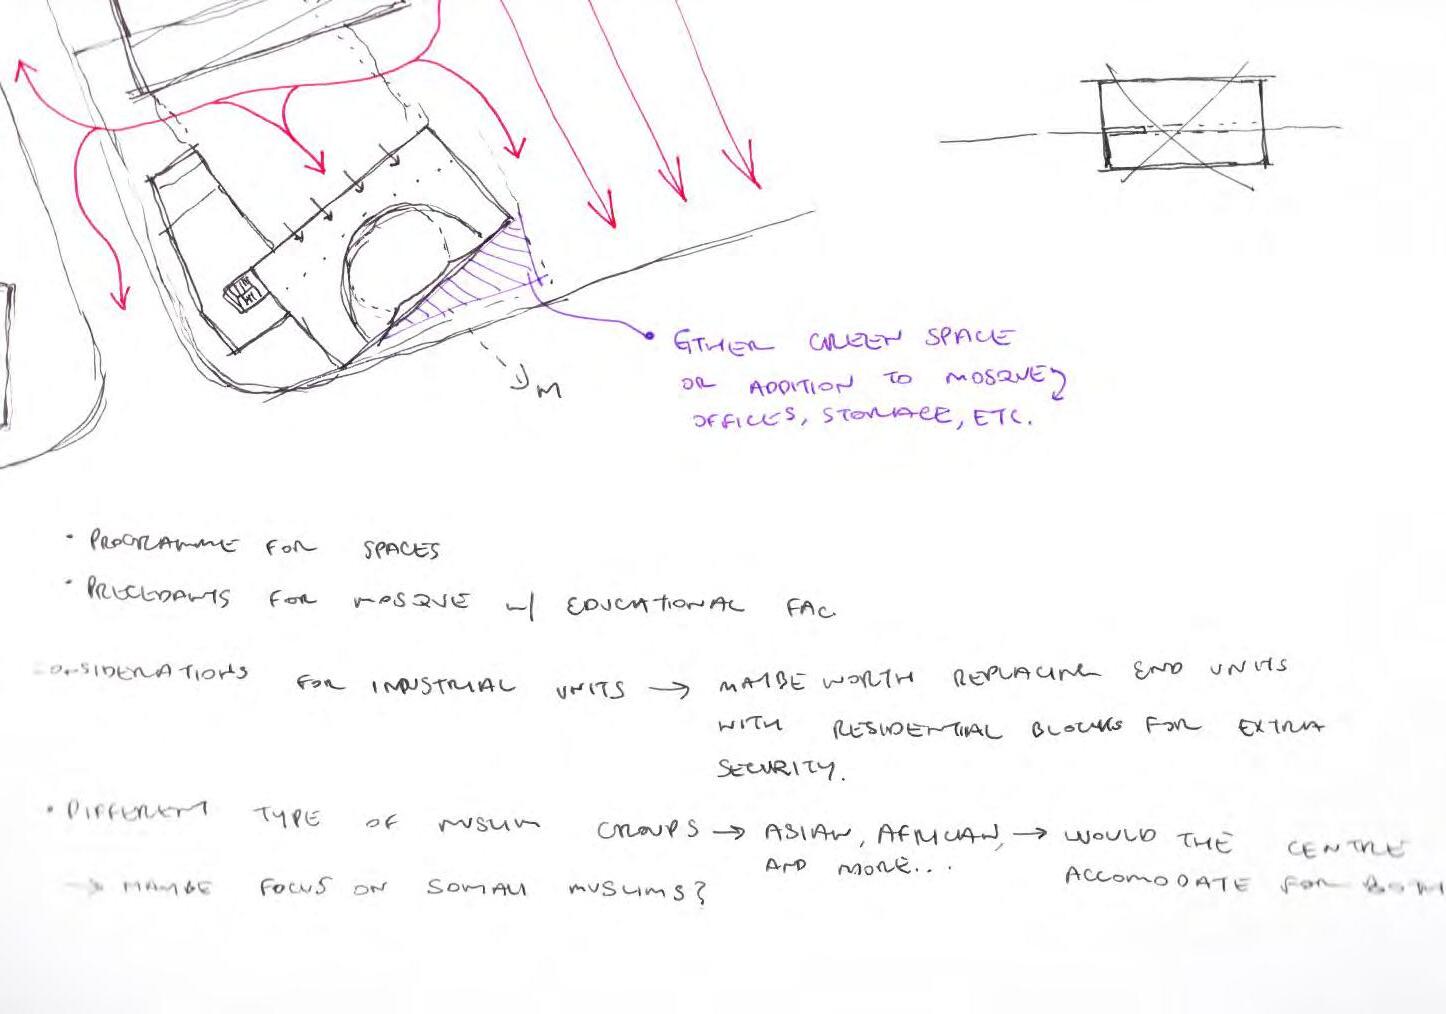 M
EITHER GREEN SPACE
OR ADDITION TO MOSQUE
OFFICES, STORAGE, ETC.
• PROGRAMME FOR SPACES
• PRECEDANTS FOR MOSQUE W/ EDUCATIONAL FAC.
CONSIDERATIONS FOR INDUSTRIAL UNITS → MAYBE WORTH REPLACING END UNITS
WITH RESIDENTIAL BLOCKS FOR EXTRA
SECURITY.
• DIFFERENT TYPE OF MUSLIM GROUPS → ASIAN, AFRICAN, → WOULD THE CENTRE
AND MORE... ACCOMODATE FOR BOTH
→ MAYBE FOCUS ON SOMALI MUSLIMS?